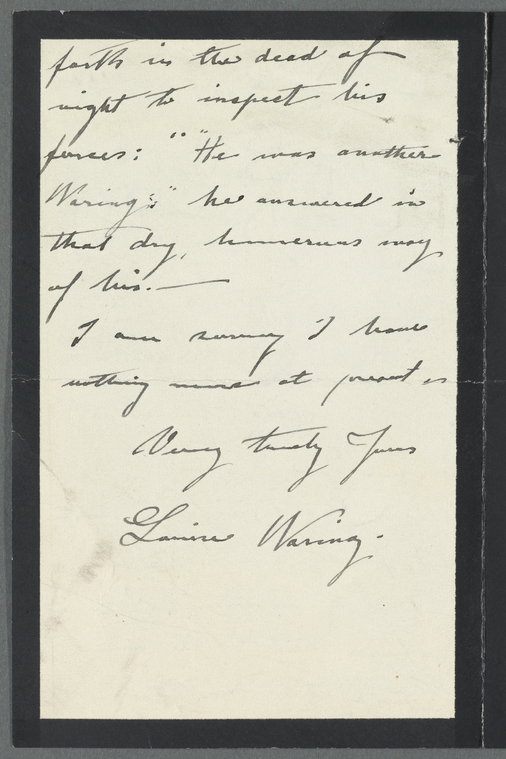 forth in the dead of
night to inspect his
forces: " "He was another
Waring;" he answered in
that dry, humerous way
of his.—
I am sorry I have
nothing more at present
Very truly Yours
Louise Waring.